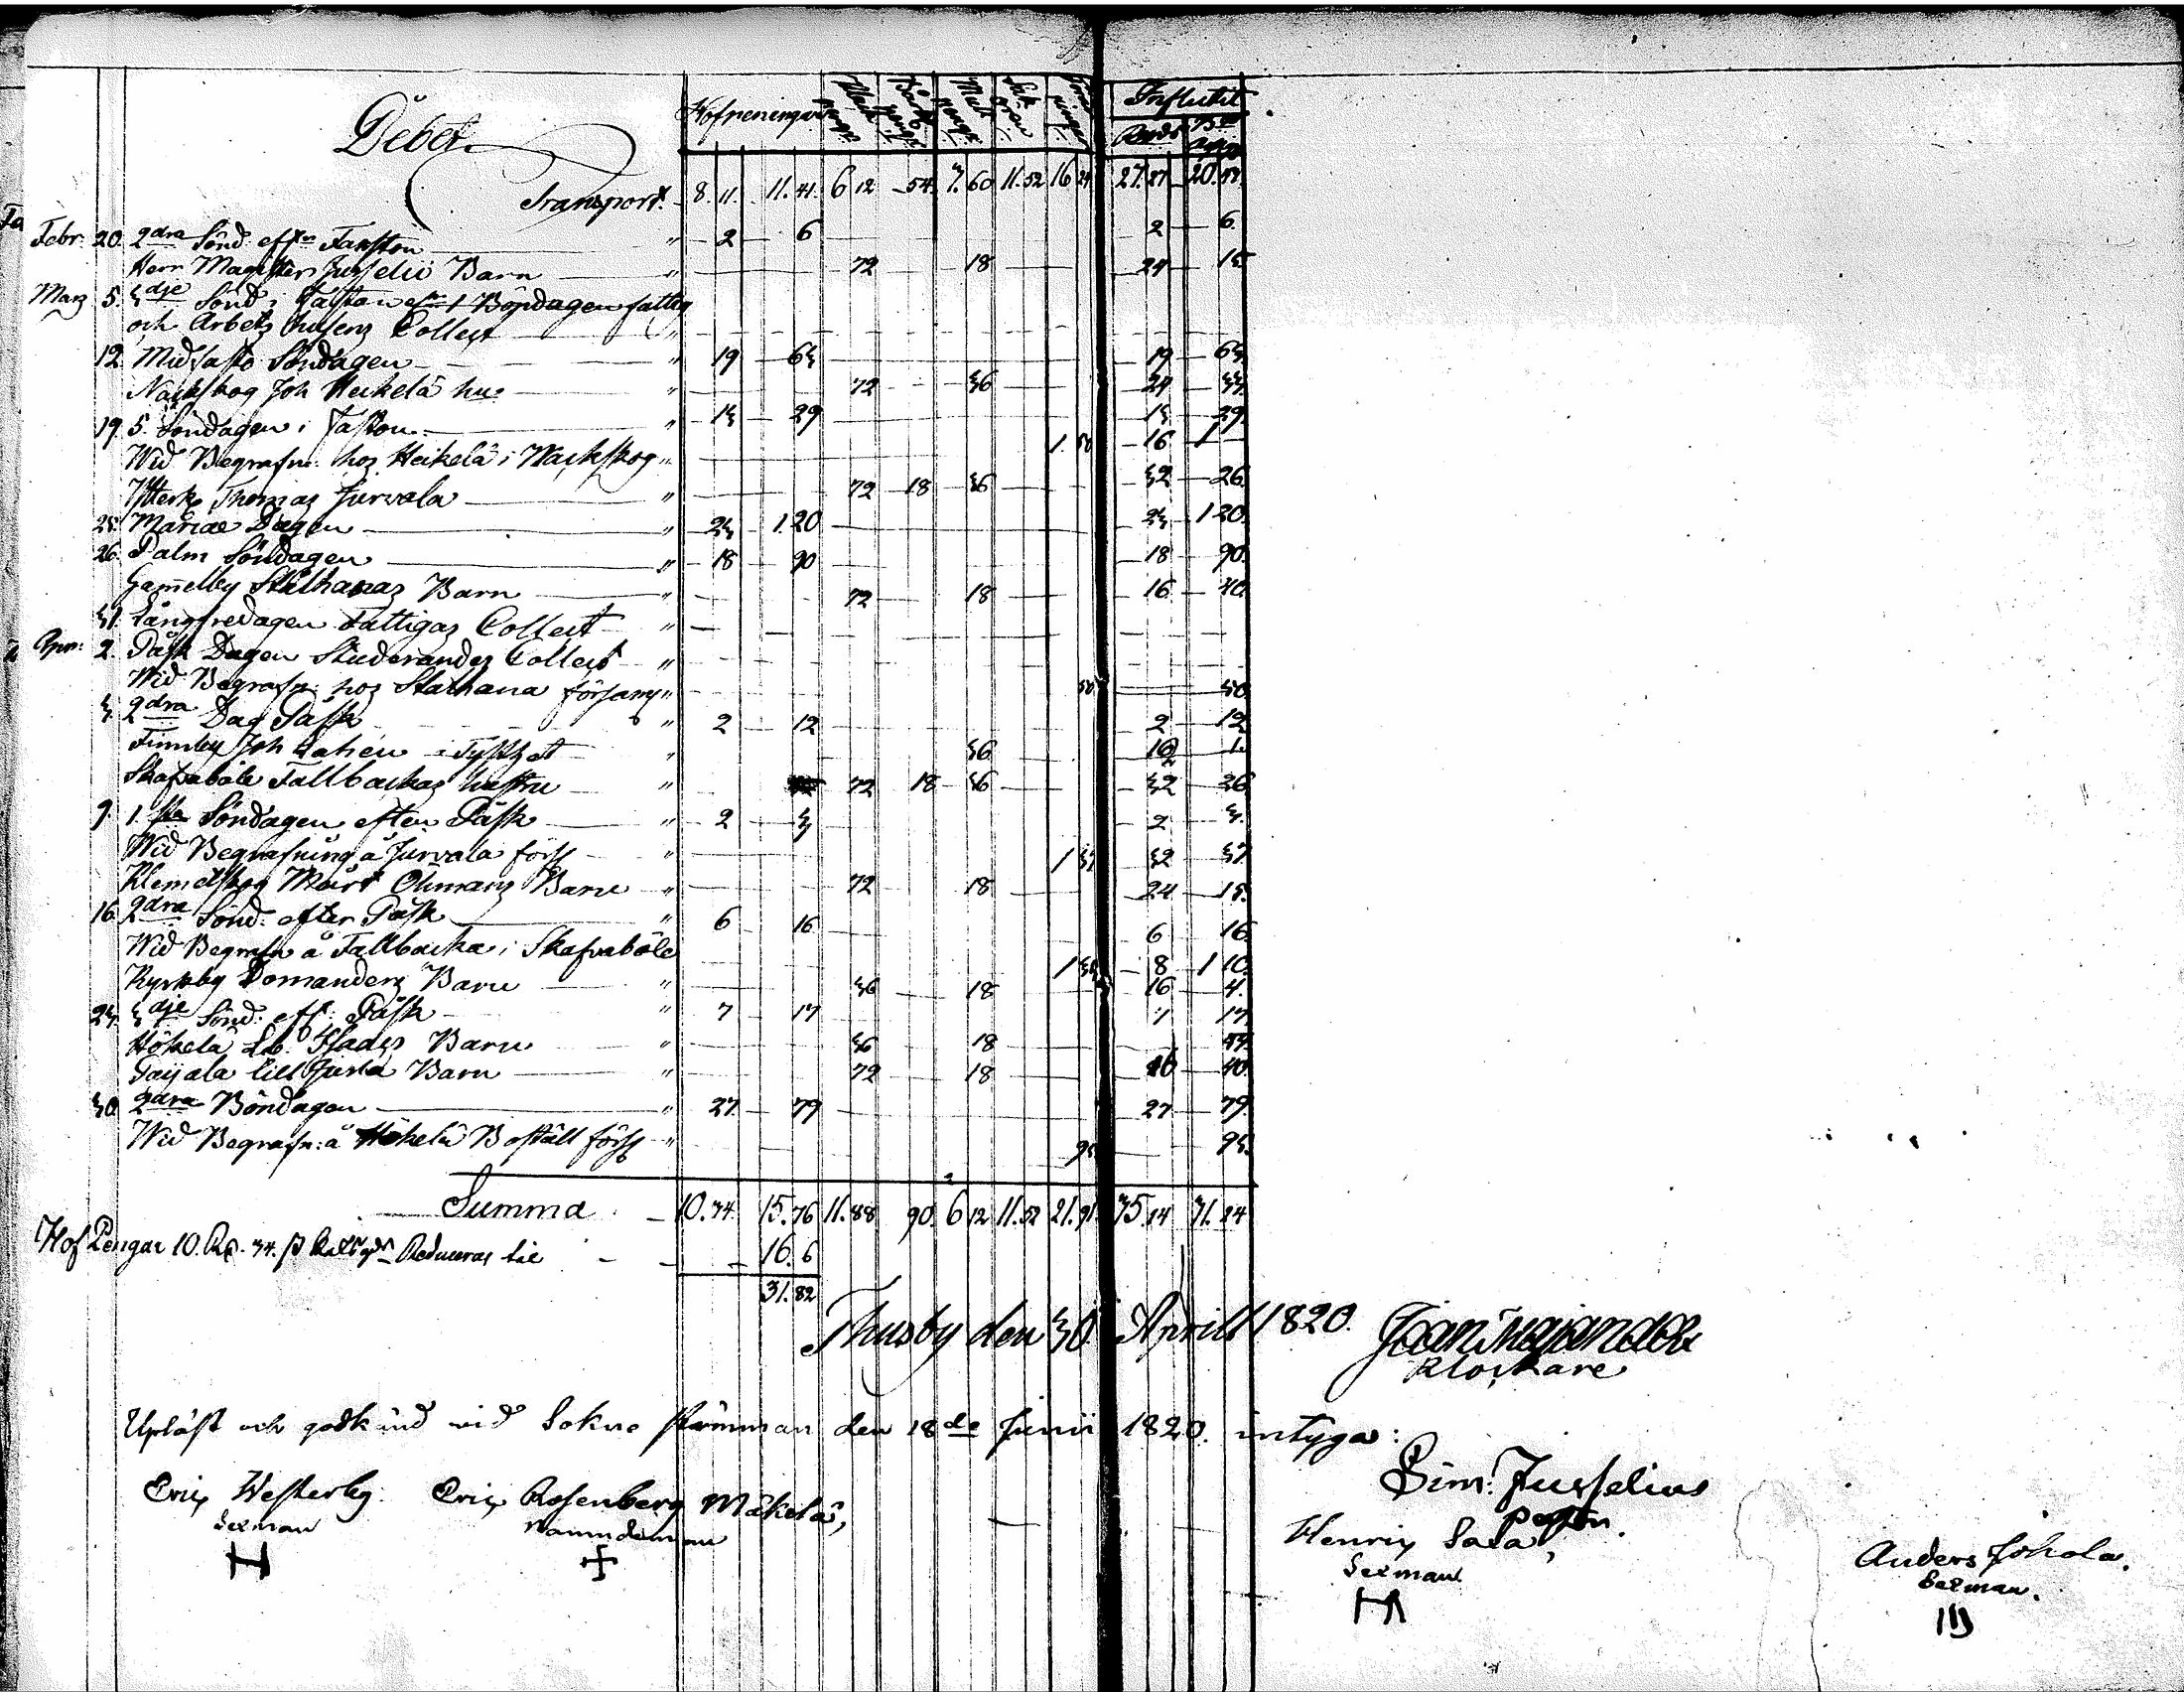 Debet Hofpeningar Klock pengr Bår pengr Mull pengr Influtit
Transport. 8. 11. 11. 41. 6 12 54. 7. 60 11. 52 16 24 27. 27 20. 49.
Febr. 20. 2dra Sönd: efter Faston " 2 6 2 6.
Herr Magister Jusselii Barn " 72 18 24 15.
Marz 5. 3dje Sönd: i Faston 1 Böndagen fattig
och Arbetz husens Collect "
12. Midfasto Söndagen " 19 63 19 63.
Nackskog Joh Heikelä hu: " 72 36 24 33.
19. 5. Söndagen i Faston " 13 29 13 29.
Wid Begrafn: hos Heikelä i Nackskog " 1. 50 16 1
Ytterk Thomas Jurvala " 72 18 36 32 26.
25. Mariæ Dagen " 23 1 20 23 1 20.
26. Palm Söndagen " 18 90 18 90.
Gamelby Ståhanas Barn " 72 18 16 40.
31. Långfredagen Fattigas Collect "
Apr: 2. Påsk Dagen Studerandes Collect "
Wid Begrafn: hos Ståhana försam " 50. 50.
3. 2dra Dag Påsk " 2 12 2 12
Finnby Joh 36 16 1.
Skafvaböle Fallbackas hustru " 72 18 36 32 26
9. 1sta Söndagen efter Påsk " 2 3 2 3.
Wid Begrafning å Jurvala förs " 1 37 32 37.
Klemetskog Mårt Öhmans Barn " 72 18 24 15.
16. 2dra Sönd: efter Påsk " 6 16 6 16
Wid Begrafn å Fallbacka i Skafvaböle 1 30 8 1 10.
Kyrkby Domanders Barn " 36 18 16 4.
23. 3dje Sönd: eft: Påsk " 7 17 7 17.
Hökelä Barn " 36 18 54.
Paijala lill Jusla Barn " 72 18 16 40.
30. 2dra Böndagen " 27. 79 27 79.
Wid Begrafn: å Hökelä Boställ förs " 95. 95.
Summa 10. 34. 15. 76 11. 88 90. 6 12 11. 52 21. 91. 35 14 31. 24
Hof Pengar 10. R. 34. Reduceras till 16. 6
31. 82
Thusby den 30. April 1820.
Klockare
Upläst och godkänd vid Sokne stämman den 18de Junii 1820. intyga:
Eric Westerby. Eric Rosenberg Mäkelä, Sim: Jusselius
Sexman Nämndeman Pastor.
Henric Sala, Anders Jokela.
Sexman Sexman.